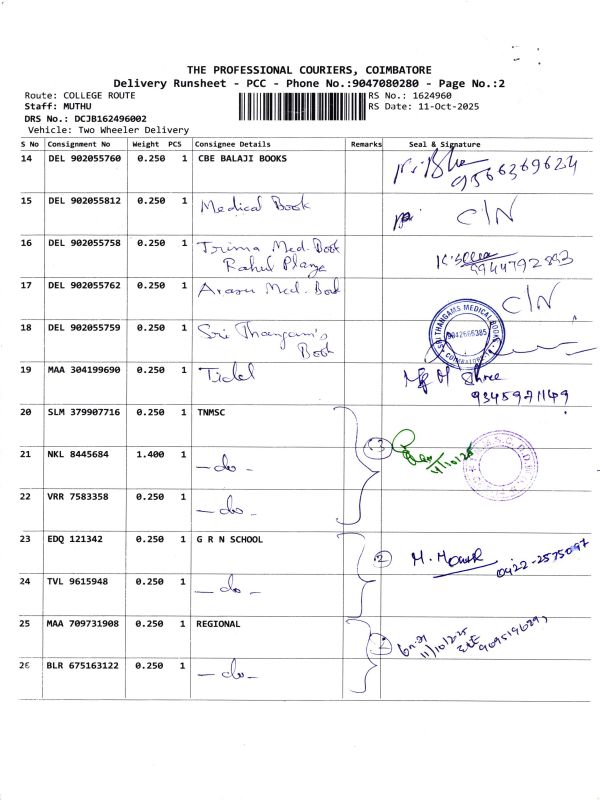 THE PROFESSIONAL COURIERS, COIMBATORE
Delivery Runsheet - PCC - Phone No.:9047080280 - Page No.:2
Route: COLLEGE ROUTE
RS No.: 1624960
Staff: MUTHU
RS Date: 11-Oct-2025
DRS No.: DCJB162496002
Vehicle: Two Wheeler Delivery
S No Consignment No Weight PCS Consignee Details Remarks Seal & Signature
14 DEL 902055760 0.250 1 CBE BALAJI BOOKS
9566369624
15 DEL 902055812 0.250 1 Medical Book C/N
16 DEL 902055758 0.250 1 Trima Med. Book
Rahul Plaza
9944792893
17 DEL 902055762 0.250 1 Arasu Med. Book C/N
SRI THANGAMS MEDICAL BOOK
9042666385
COIMBATORE
18 DEL 902055759 0.250 1 Sri Thangam's
Book
19 MAA 304199690 0.250 1 Tidel
Shree
9345921149
20 SLM 379907716 0.250 1 TNMSC
3
11/10/25
21 NKL 8445684 1.400 1 - do -
22 VRR 7583358 0.250 1 - do -
23 EDQ 121342 0.250 1 G R N SCHOOL
2
0422-2575097
24 TVL 9615948 0.250 1 - do -
25 MAA 709731908 0.250 1 REGIONAL
2
11/10/25
26 BLR 675163122 0.250 1 - do -